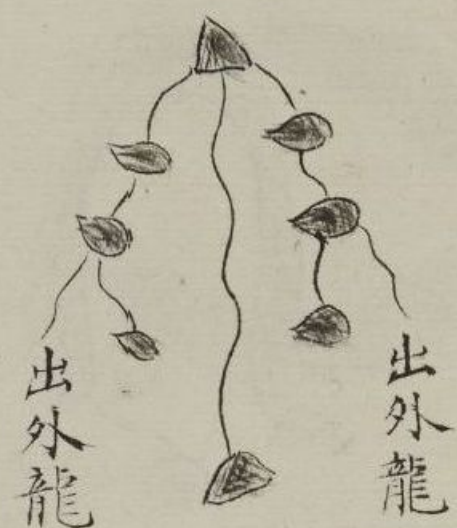 出外龍
出外龍